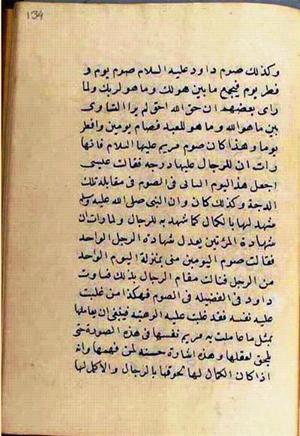 134
وكذلك صوم داود عليه السلام صوم يوم و
فطر يوم فيجمع ما بين ما هو لك وما هو لربك ولما
راى بعضهم ان حق الله احق لم ير التساوى
بين ما هو لله وما هو للعبد فصام يومين وافطر
يوما وهذا كان صوم مريم عليها السلام فانها
رات ان للرجال عليها درجة فقالت عسى
اجعل هذا اليوم الثانى فى الصوم فى مقابلة تلك
الدرجة وكذلك كان وان النبى صلى الله عليه
شهد لها بالكمال كما شهد به للرجال ولما رات ان
شهادة المرءتين تعدل شهادة الرجل الواحد
فقالت صوم اليومين منى بمنزلة اليوم الواحد
من الرجل فنالت مقام الرجال بذلك فساوت
داود فى الفضيلة فى الصوم فهكذا من غلبت
عليه نفسه فقد غلبت عليه الوهيته فينبغى ان يعاملها
بمثل ما عاملت به مريم نفسها فى هذه الصورة حتى
يلحق لعقلها وهذه اشارة حسنة لمن فهمها وانه
اذا كان الكمال لها لحوقها بالرجال والاكمل لها